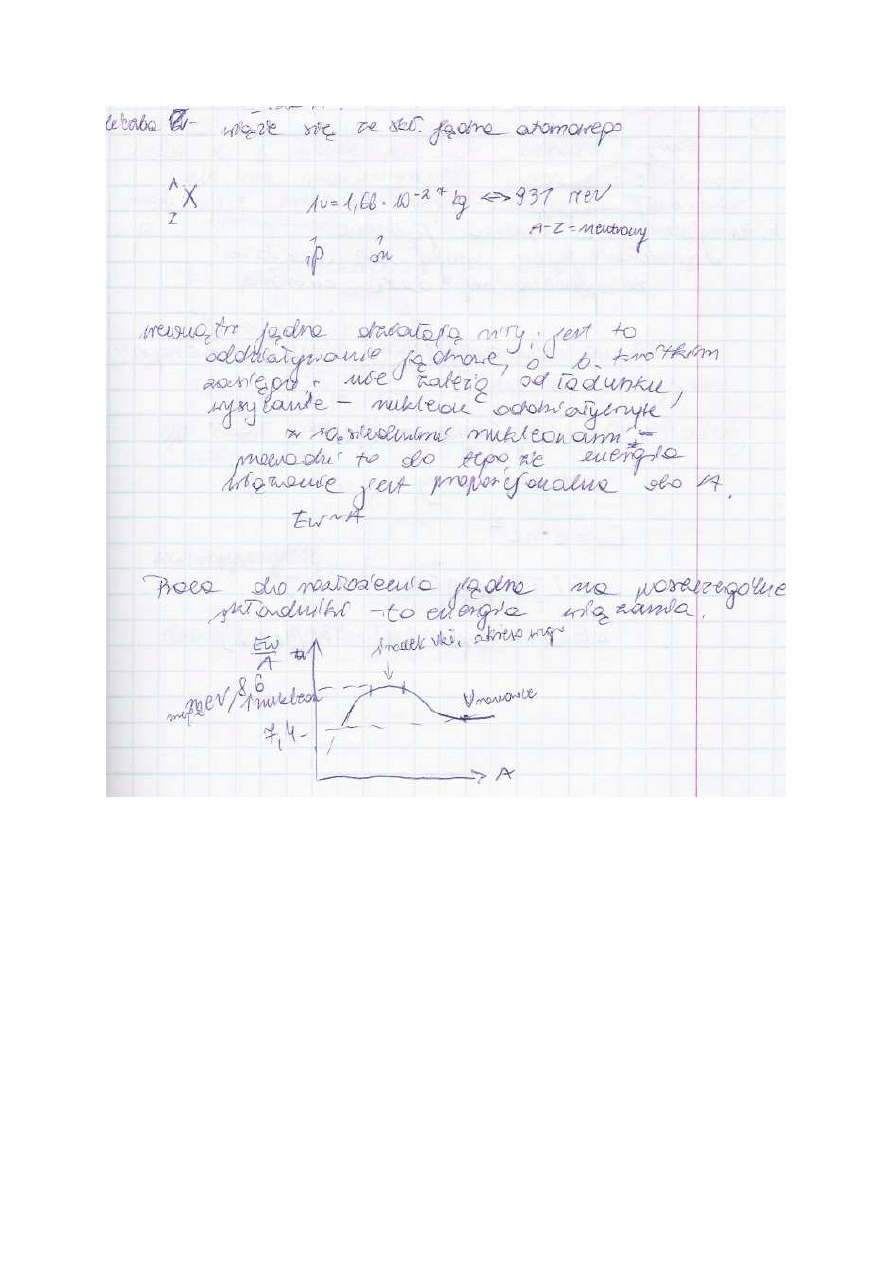 liczba Z - wiąże się ze skł. jądra atomowego
A
Z X
1u = 1,66 · 10⁻²⁷ kg <=> 931 MeV
A-Z = neutrony
¹₁p ¹₀n
wewnątrz jądra działają siły, jest to
oddziaływanie jądrowe, o b. krótkim
zasięgu, nie zależą od ładunku,
wysycanie - nukleon oddziaływuje
z sąsiednimi nukleonami -
prowadzi to do tego, że energia
wiązania jest proporcjonalna do A.
Ew ~ A
Praca do rozłożenia jądra na poszczególne
składniki - to energia wiązania.
Ew/A
środek ukł. okresowego
8,6
MeV/1 nukleon
Uranowce
7,4
A